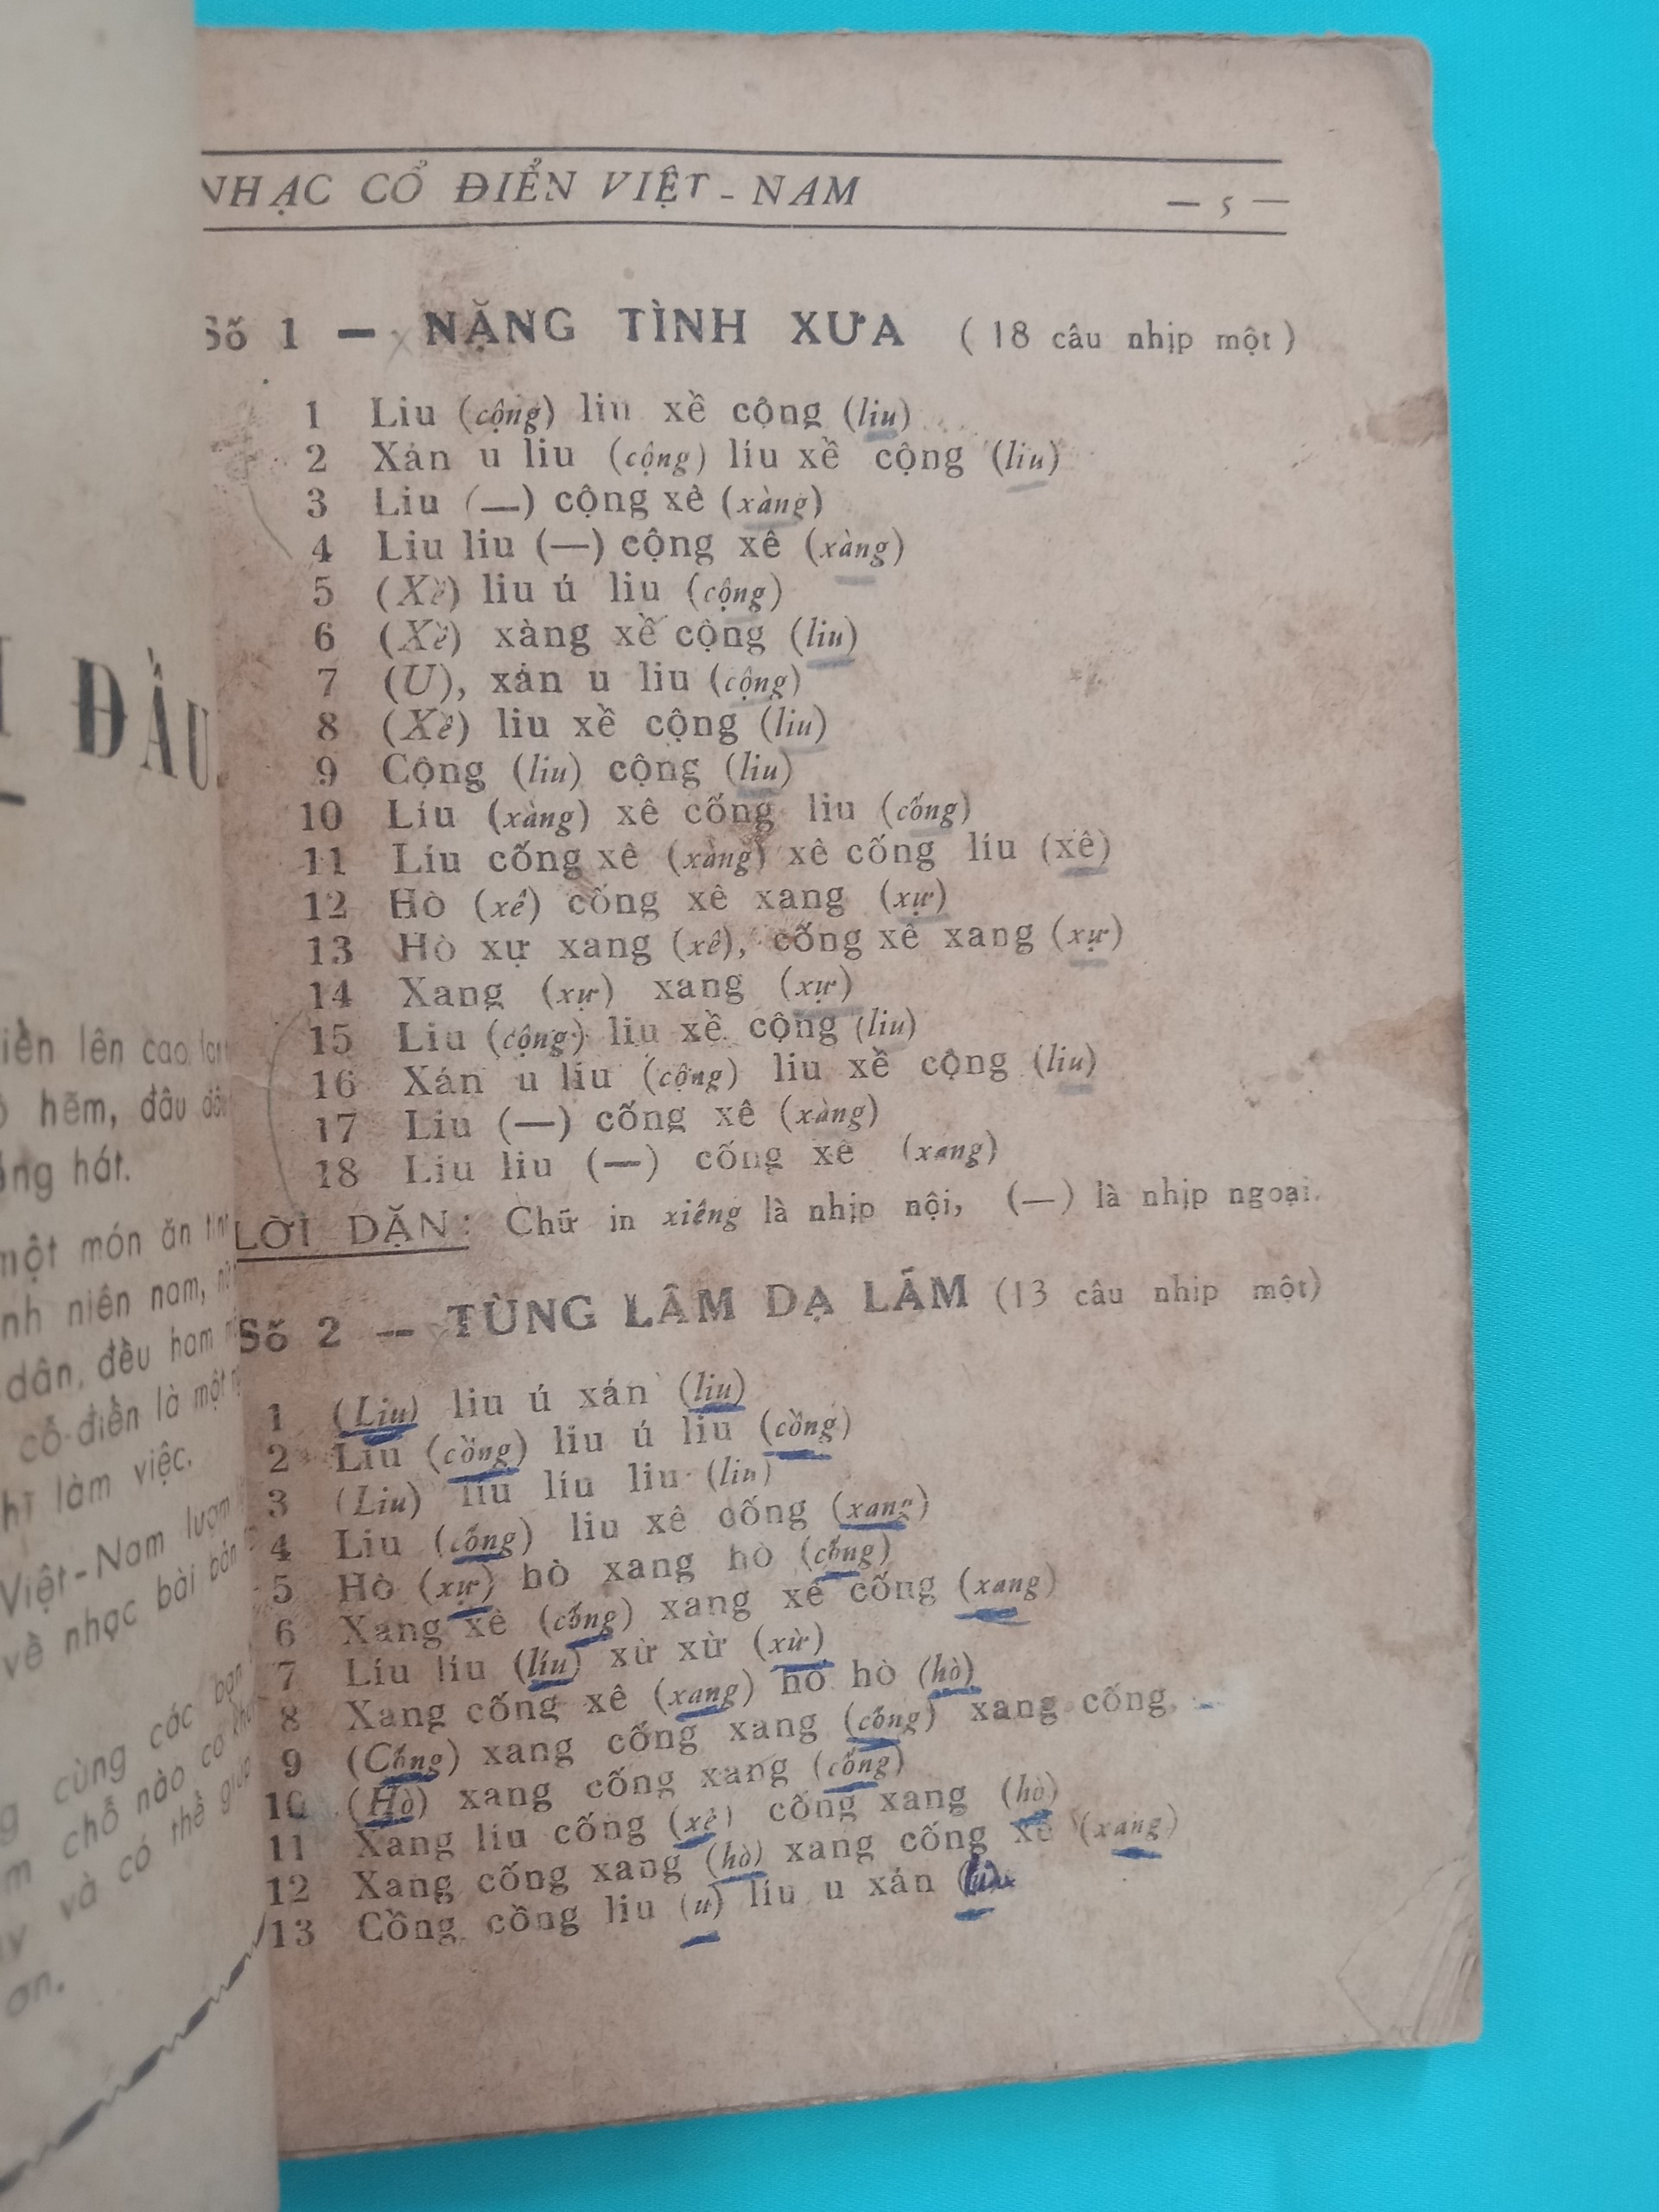 ĐẦU
iển lên cao
hẽm, đâu
hát.
một món ăn
niên nam,
dân, đều ham
cổ-điển là một
làm việc.
Việt-Nam lượm
về nhạc bài bản
cùng các bạn
chỗ nào có
và có thể giúp
ơn.
NHẠC CỔ ĐIỂN VIỆT-NAM — 5 —
Số 1 — NẶNG TÌNH XƯA (18 câu nhịp một)
1 Liu (cộng) liu xề cộng (liu)
2 Xán u liu (cộng) líu xề cộng (liu)
3 Liu (—) cộng xê (xàng)
4 Liu liu (—) cộng xê (xàng)
5 (Xề) liu ú liu (cộng)
6 (Xề) xàng xề cộng (liu)
7 (U), xán u liu (cộng)
8 (Xề) liu xề cộng (liu)
9 Cộng (liu) cộng (liu)
10 Líu (xàng) xê cống liu (cống)
11 Líu cống xê (xàng) xê cống líu (xê)
12 Hò (xê) cống xê xang (xự)
13 Hò xự xang (xê), cống xê xang (xự)
14 Xang (xự) xang (xự)
15 Liu (cộng) liu xề cộng (liu)
16 Xán u liu (cộng) liu xề cộng (liu)
17 Liu (—) cống xê (xàng)
18 Liu liu (—) cống xê (xang)
LỜI DẶN: Chữ in xiêng là nhịp nội, (—) là nhịp ngoại.
Số 2 — TÙNG LÂM DẠ LÃM (13 câu nhịp một)
1 (Liu) liu ú xán (liu)
2 Líu (cồng) liu ú liu (cồng)
3 (Liu) líu líu liu (liu)
4 Liu (cống) liu xê cống (xang)
5 Hò (xự) hò xang hò (cống)
6 Xang xê (cống) xang xê cống (xang)
7 Líu líu (líu) xừ xừ (xừ)
8 Xang cống xê (xang) hò hò (hò)
9 (Cống) xang cống xang (cống) xang cống,
10 (Hò) xang cống xang (cống)
11 Xang líu cống (xê) cống xang (hò)
12 Xang cống xang (hò) xang cống xê (xang)
13 Cồng cồng liu (u) líu u xán